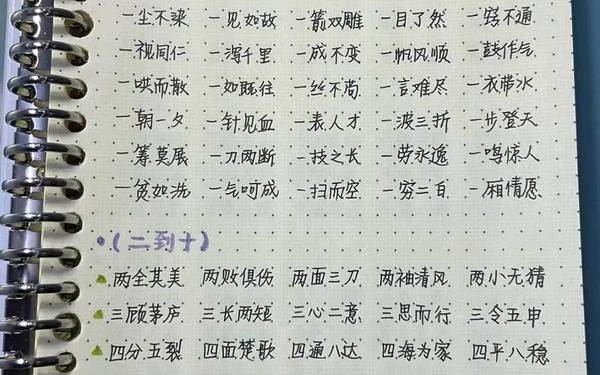 一尘不染 一见如故 一箭双雕 一目了然 一窍不通
一视同仁 一泻千里 一成不变 一帆风顺 一鼓作气
一哄而散 一如既往 一丝不苟 一言难尽 一衣带水
一朝一夕 一针见血 一表人才 一波三折 一步登天
一筹莫展 一刀两断 一技之长 一劳永逸 一鸣惊人
一贫如洗 一气呵成 一扫而空 一穷二白 一厢情愿
(二到十)
两全其美 两败俱伤 两面三刀 两袖清风 两小无猜
三顾茅庐 三长两短 三心二意 三思而行 三令五申
四分五裂 四面楚歌 四通八达 四海为家 四平八稳